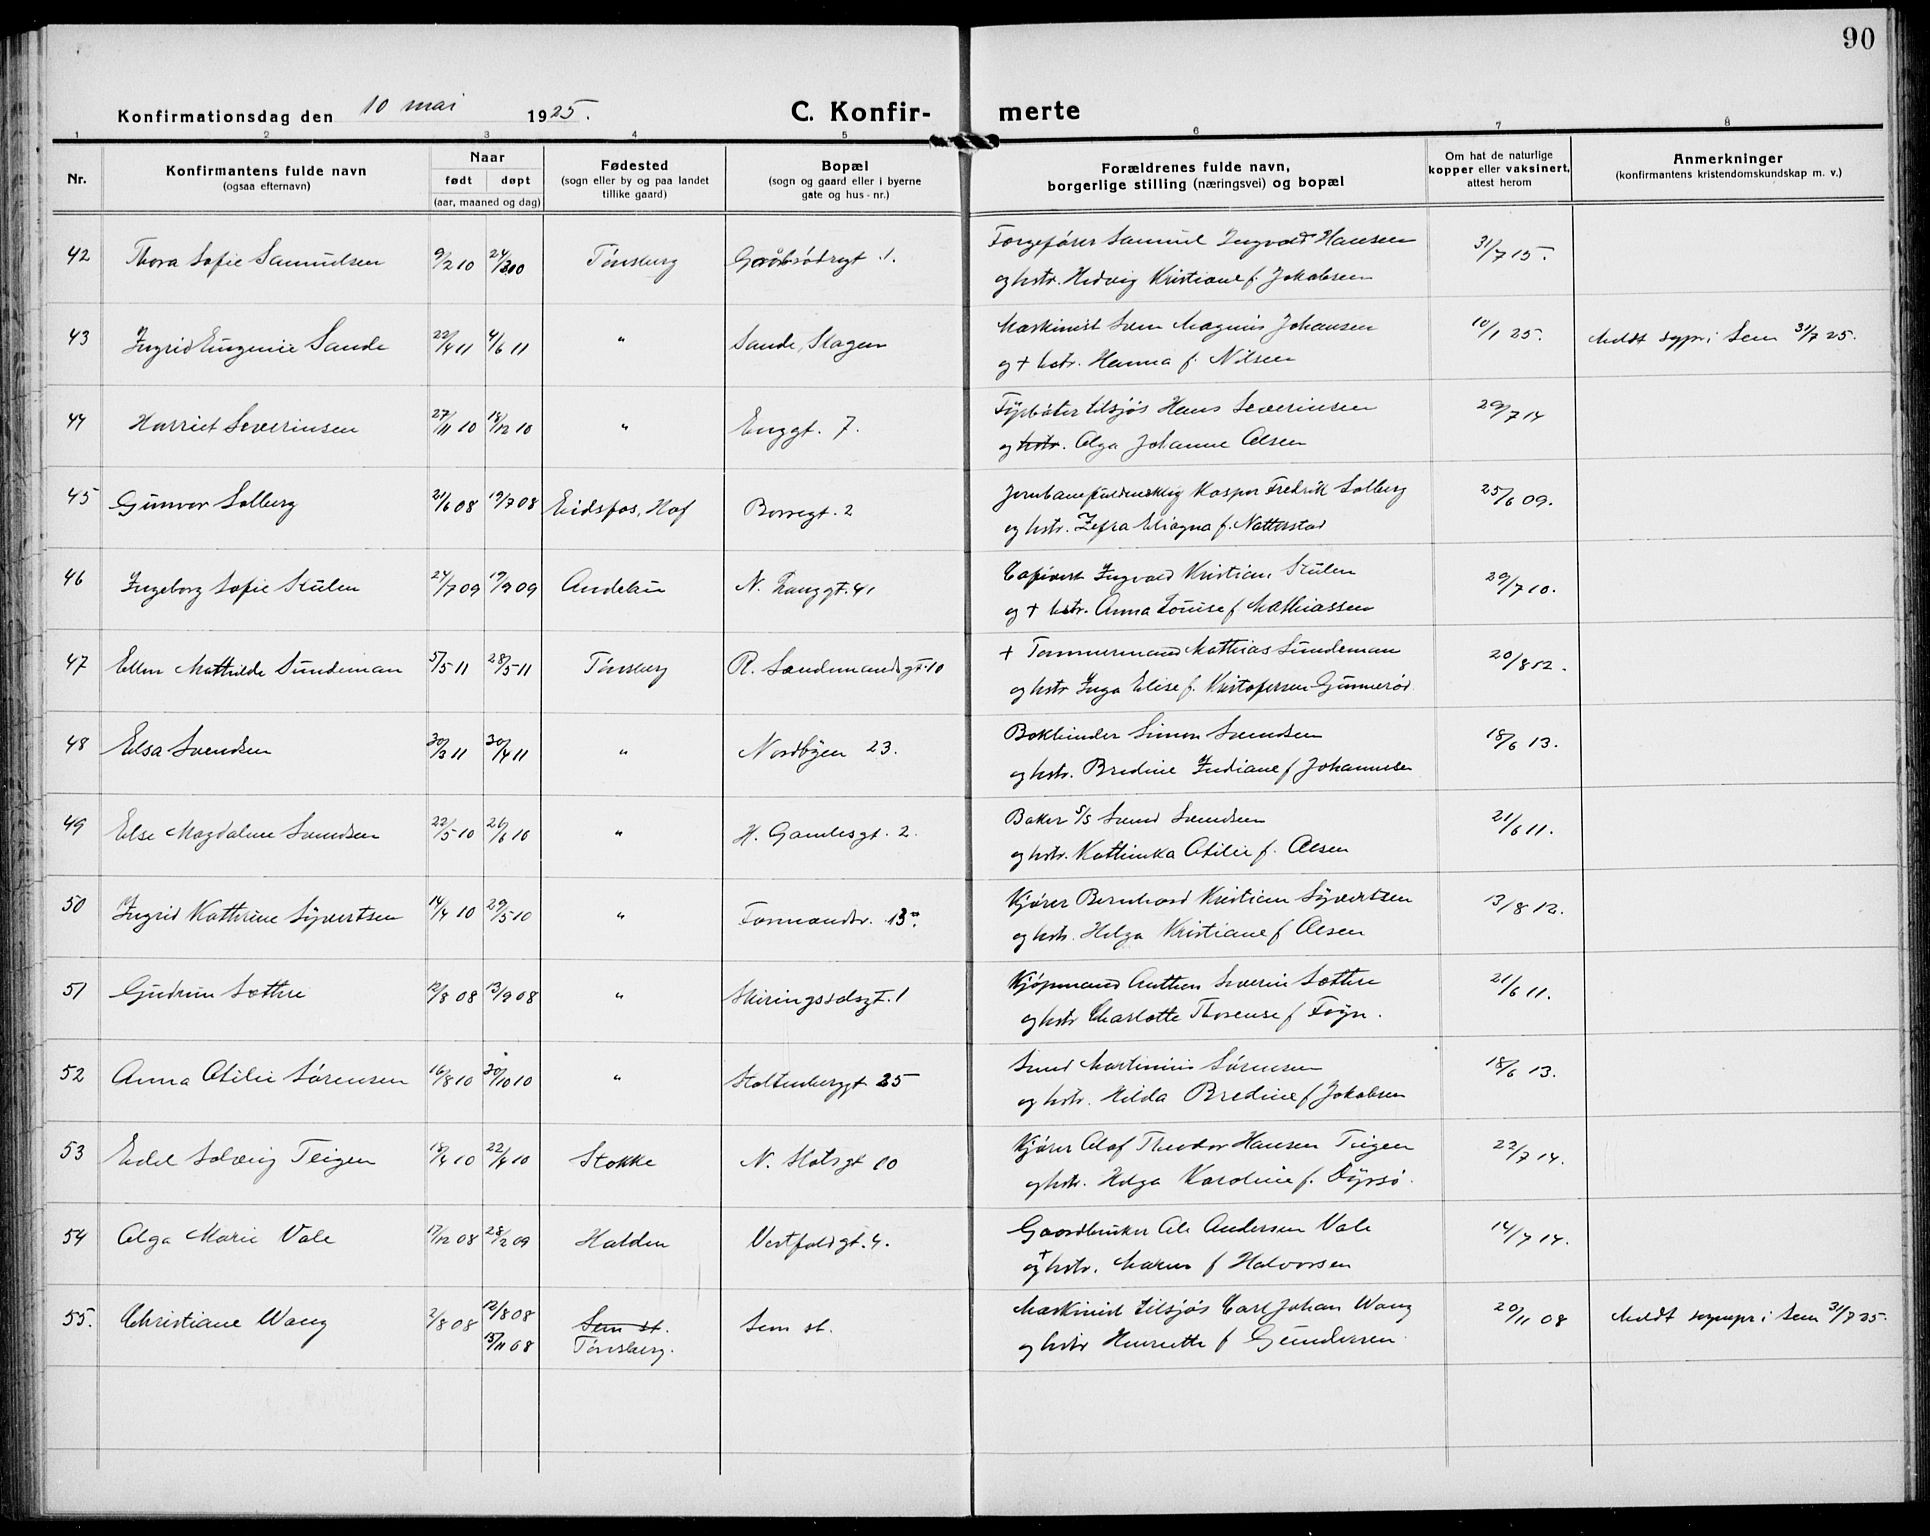 90
Konfirmationsdag den 10 mai 1925.
C. Konfirmerte
1 2 3 4 5 6 7 8
Nr. Konfirmantens fulde navn (ogsaa efternavn) Naar født døpt (aar, maaned og dag) Fødested (sogn eller by og paa landet tillike gaard) Bopæl (sogn og gaard eller i byerne gate og hus-nr.) Forældrenes fulde navn, borgerlige stilling (næringsvei) og bopæl Om hat de naturlige kopper eller vaksinert, attest herom Anmerkninger (konfirmantens kristendomskundskap m. v.)
42 Thora Sofie Samuelsen 9/2 10 24/3 10 Tønsberg Gråbrødregt 1. Færgefører Samuel Ingvald Hansen 31/7 15.
og hstr. Hedvig Kristiane f. Jakobsen
43 Ingrid Eugenie Sande 22/4 11 4/6 11 " Sande, Slagen Maskinist Sven Magnus Johansen 10/1 25. Meldt sogpr. i Sem 31/7 25.
og + hstr. Hanna f. Nilsen
44 Harriet Severinsen 27/11 10 18/12 10 " Enggt. 7. Fyrbøter tilsjøs Hans Severinsen 29/7 14
og hstr. Olga Johanne Olsen
45 Gunvor Solberg 21/6 08 19/7 08 Eidsfos, Hof Borregt. 2 Kaspar Fredrik Solberg 25/6 09.
og hstr. Zefra f. Natterstad
46 Ingeborg Sofie Skulen 24/7 09 19/9 09 Andebu N. Langgt. 41 Ingvald Kristian Skulen 29/7 10.
og + hstr. Anna Louise f Mathiassen
47 Ellen Mathilde Sundeman 5/5 11 28/5 11 Tønsberg R. Sandemandsgt. 10 + Tømmermand Mathias Sundeman 20/8 12.
og hstr. Inga Elise f. Kristofersen-Gunnerød
48 Elsa Svendsen 30/3 11 30/4 11 " Nordbyen 23. Bokbinder Simon Svendsen 18/6 13.
og hstr. Bredine Indiane f Johannesen
49 Else Magdalene Svendsen 22/5 10 26/6 10 " H. Gamlesgt. 2. Baker S/S Svend Svendsen 21/6 11.
og hstr. Kathinka Otilie f. Olsen
50 Ingrid Kathrine Syvertsen 14/4 10 29/5 10 " Formandsv. 13a. Kjører Bernhard Kristian Syvertsen 13/8 12.
og hstr. Helga Kristiane f Olsen
51 Gudrun Sæthre 12/8 08 13/9 08 " Skiringssalsgt. 1 Kjøpmand Anthon Severin Sæthre 21/6 11.
og hstr Charlotte Thorense f Føyn.
52 Anna Otilie Sørensen 16/8 10 30/10 10 " Stoltenberggt 25 Smed Martinius Sørensen 18/6 13.
og hstr. Hilda Bredine f Jakobsen
53 Edel Solveig Teigen 18/4 10 22/4 10 Stokke N. Slotsgt 10 Kjører Olaf Theodor Hansen Teigen 22/7 14.
og hstr. Helga Karoline f. Dyrsø.
54 Olga Marie Vale 17/12 08 28/2 09 Halden Vestfoldgt. 4. Gaardbruker Ole Andersen Vale 14/7 14.
og + hstr. Maren f Halvorsen
55. Christiane Wang 2/8 08 12/8 08 Sem st. Sem st. Maskinist tilsjøs Carl Johan Wang 20/11 08 Meldt sognepr i Sem 31/7 25.
15/11 08 Tønsberg. og hstr Henriette f Gundersen